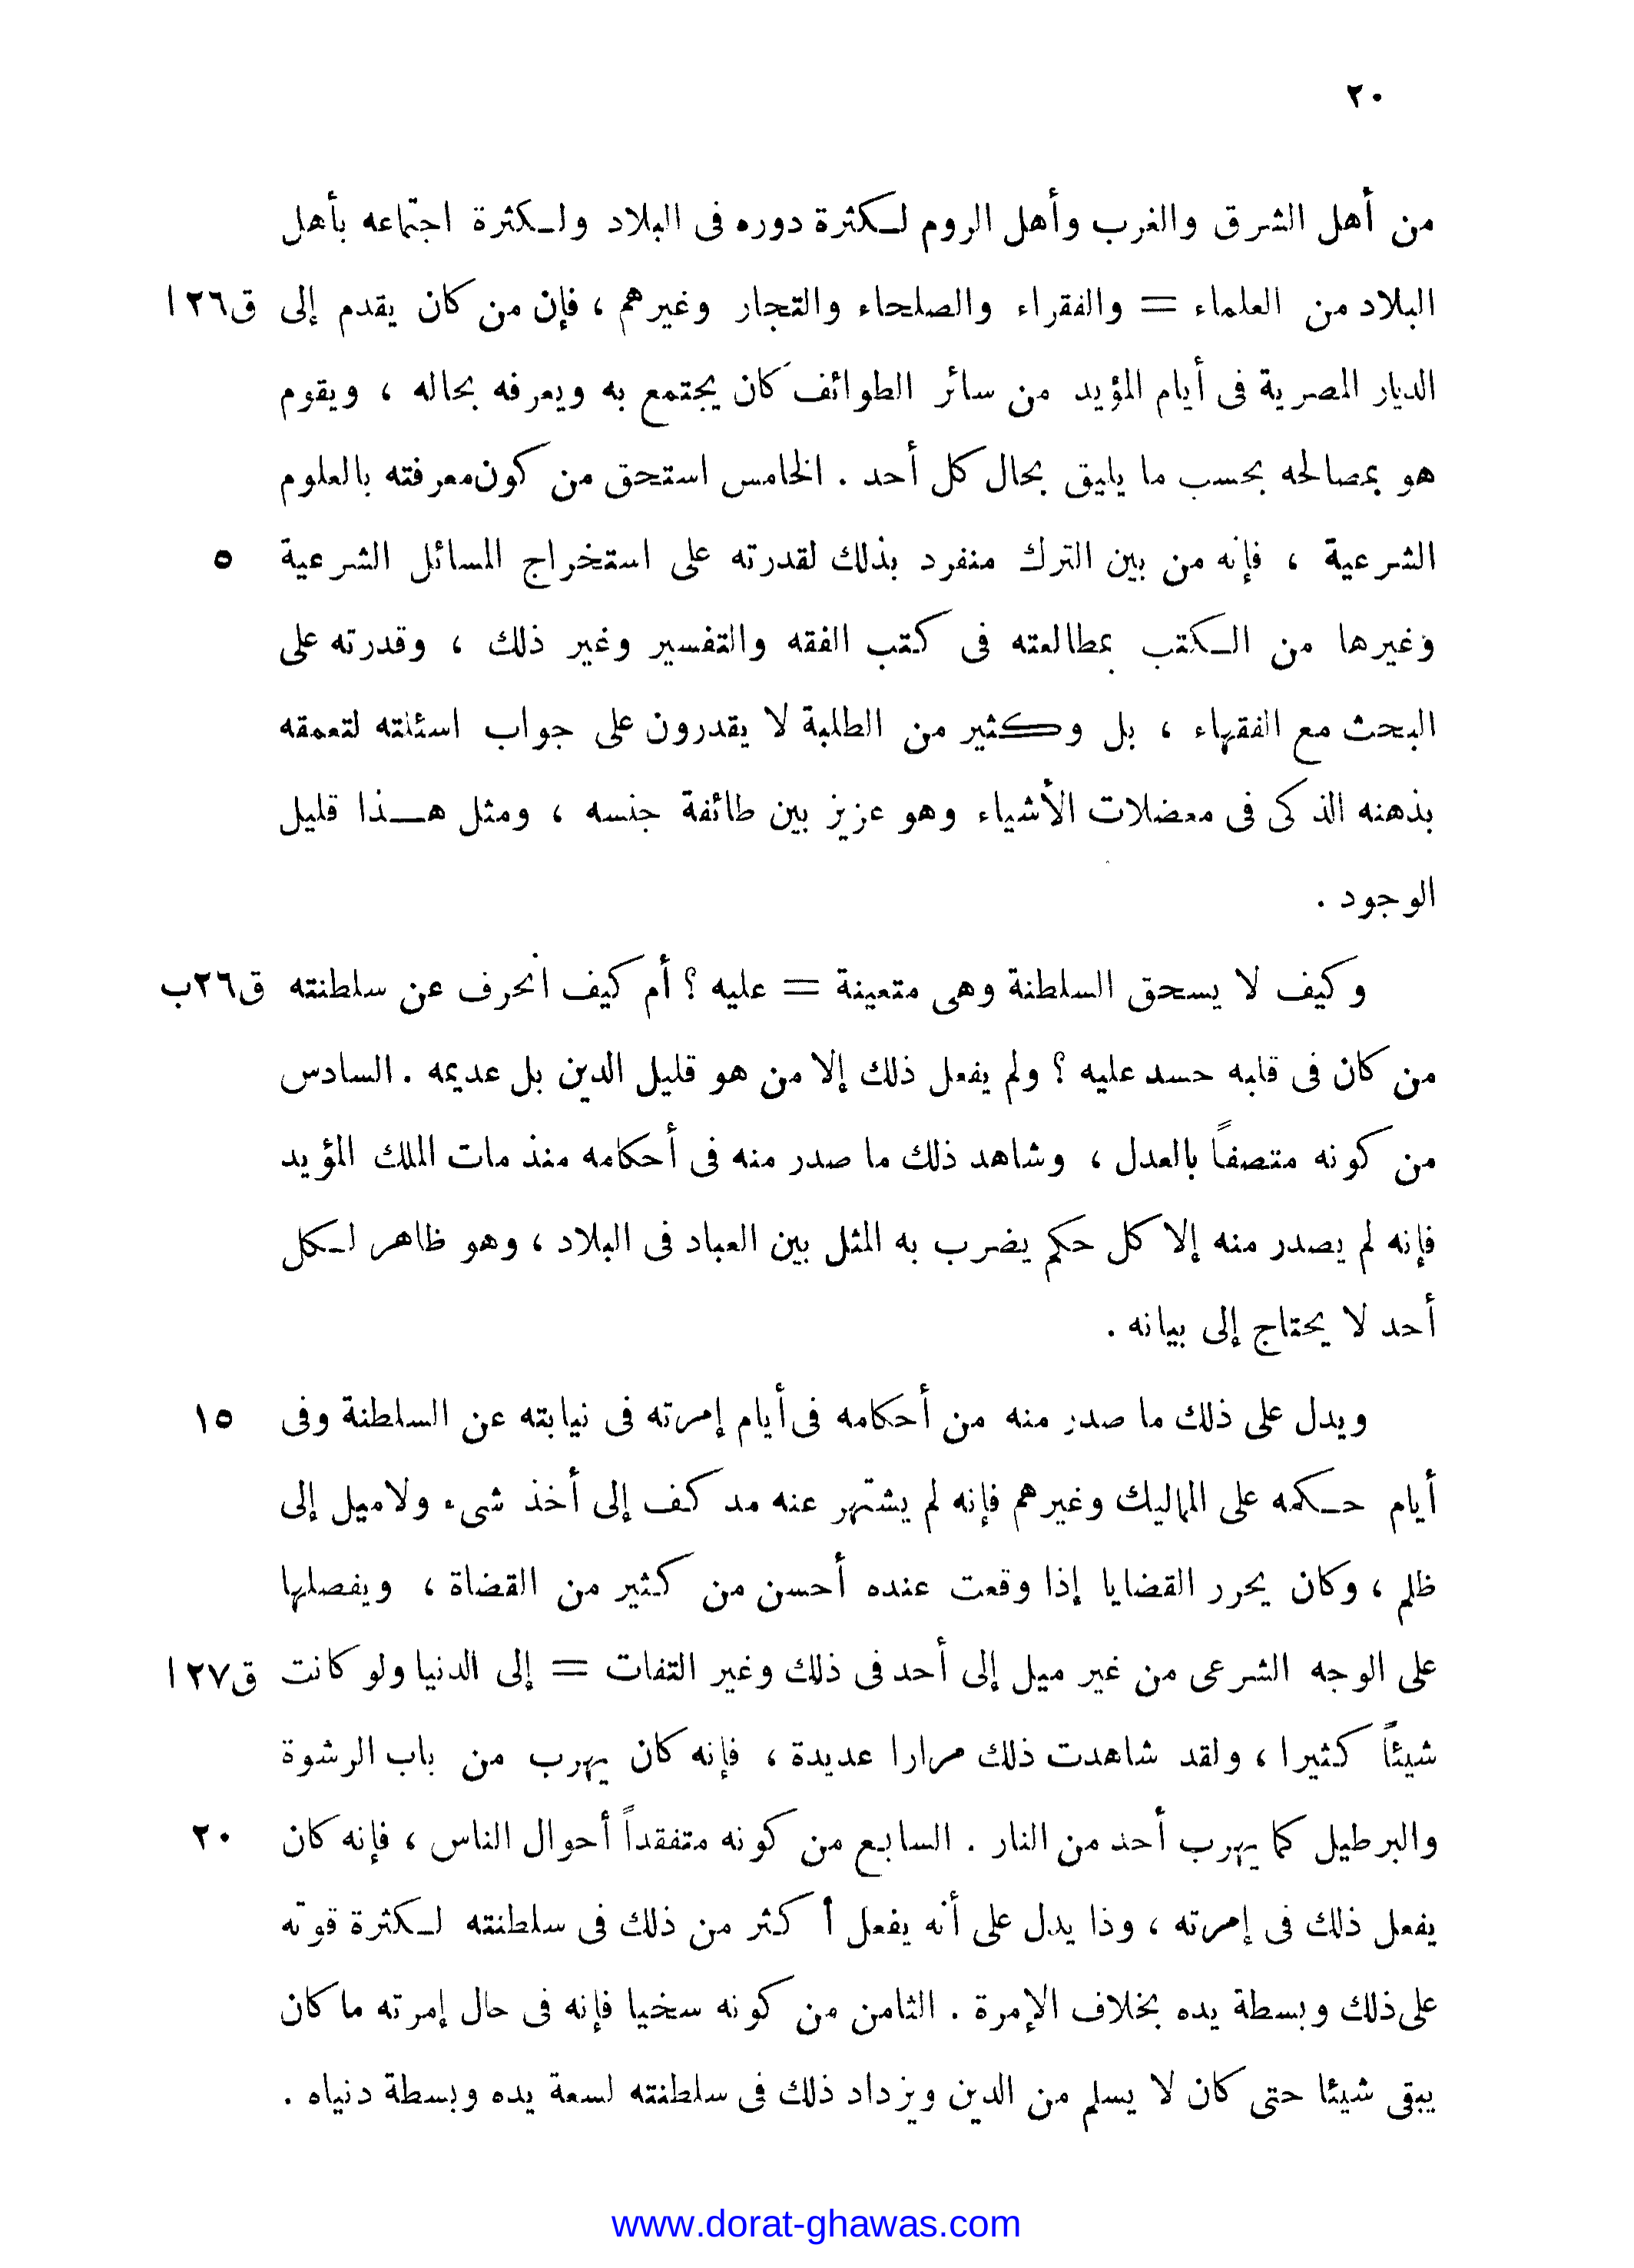 ٢٠
من أهل الشرق والغرب وأهل الروم لكثرة دوره فى البلاد ولكثرة اجتماعه بأهل
البلاد من العلماء = والفقراء والصلحاء والتجار وغيرهم ، فإن من كان يقدم إلى ق٢٦ا
الديار المصرية فى أيام المؤيد من سائر الطوائف كان يجتمع به ويعرفه بحاله ، ويقوم
هو بمصالحه بحسب ما يليق بحال كل أحد . الخامس استحق من كون معرفته بالعلوم
الشرعية ، فإنه من بين الترك منفرد بذلك لقدرته على استخراج المسائل الشرعية ٥
وغيرها من الكتب بمطالعته فى كتب الفقه والتفسير وغير ذلك ، وقدرته على
البحث مع الفقهاء ، بل وكثير من الطلبة لا يقدرون على جواب اسئلته لتعمقه
بذهنه الذكى فى معضلات الأشياء وهو عزيز بين طائفة جنسه ، ومثل هذا قليل
الوجود .
وكيف لا يسحق السلطنة وهى متعينة = عليه ؟ أم كيف انحرف عن سلطنته ق٢٦ب
من كان فى قلبه حسد عليه ؟ ولم يفعل ذلك إلا من هو قليل الدين بل عديمه . السادس
من كونه متصفاً بالعدل ، وشاهد ذلك ما صدر منه فى أحكامه منذ مات الملك المؤيد
فإنه لم يصدر منه إلا كل حكم يضرب به المثل بين العباد فى البلاد ، وهو ظاهر لكل
أحد لا يحتاج إلى بيانه .
ويدل على ذلك ما صدر منه من أحكامه فى أيام إمرته فى نيابته عن السلطنة وفى ١٥
أيام حكمه على المماليك وغيرهم فإنه لم يشتهر عنه مد كف إلى أخذ شىء ولا ميل إلى
ظلم ، وكان يحرر القضايا إذا وقعت عنده أحسن من كثير من القضاة ، ويفصلها
على الوجه الشرعى من غير ميل إلى أحد فى ذلك وغير التفات = إلى الدنيا ولو كانت ق٢٧ا
شيئاً كثيرا ، ولقد شاهدت ذلك مرارا عديدة ، فإنه كان يهرب من باب الرشوة
والبرطيل كما يهرب أحد من النار . السابع من كونه متفقداً أحوال الناس ، فإنه كان ٢٠
يفعل ذلك فى إمرته ، وذا يدل على أنه يفعل أكثر من ذلك فى سلطنته لكثرة قوته
على ذلك وبسطة يده بخلاف الإمرة . الثامن من كونه سخيا فإنه فى حال إمرته ما كان
يبقى شيئا حتى كان لا يسلم من الدين ويزداد ذلك فى سلطنته لسعة يده وبسطة دنياه .
www.dorat-ghawas.com